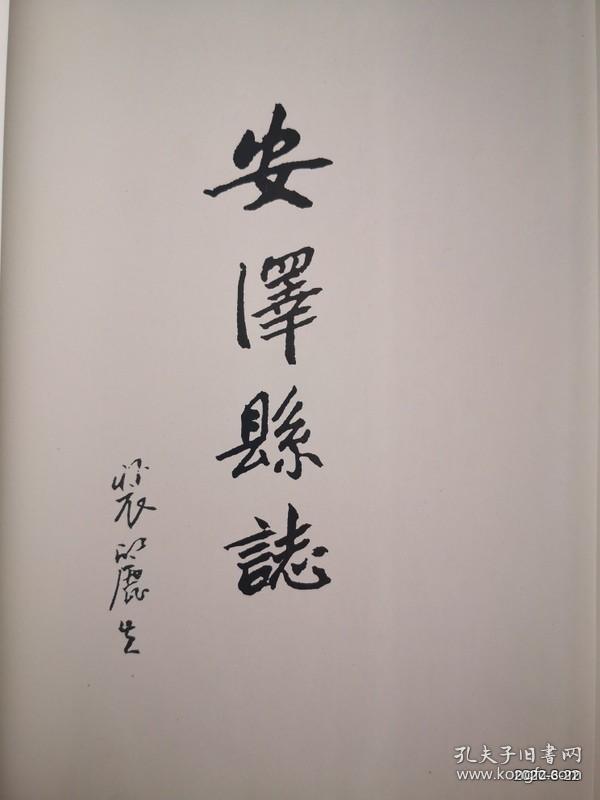 安澤縣誌
裴麗生
孔夫子旧書网
www.kongfz.com
2022-6-22